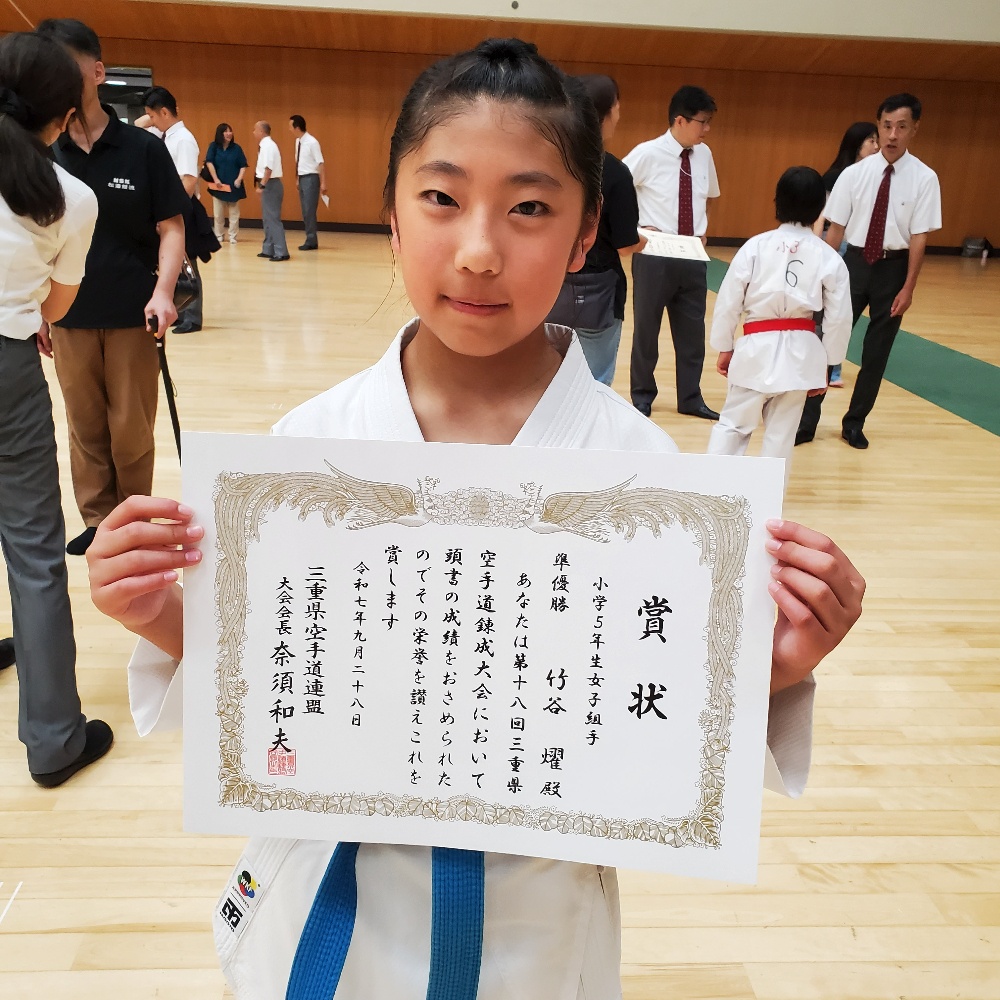 賞状
小学5年生女子組手
準優勝 竹谷 燿 殿
あなたは第十八回三重県
空手道錬成大会において
頭書の成績をおさめられた
のでその栄誉を讃えこれを
賞します
令和七年九月二十八日
三重県空手道連盟
大会会長 奈須和夫
6